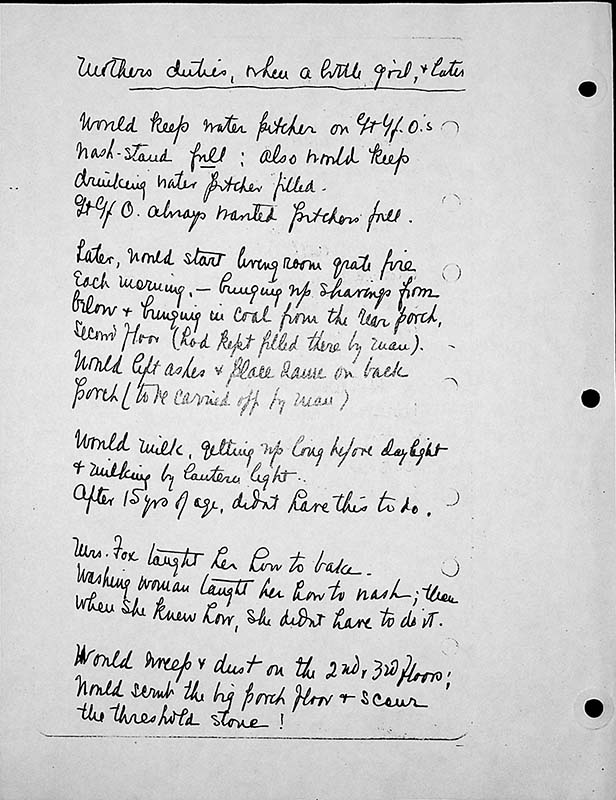 Mothers duties, when a little girl, & later
Would keep water pitcher on Gt Gf. O.'s
wash-stand full; also would keep
drinking water pitcher filled.
Gt Gf O. always wanted pitchers full.
Later, would start livingroom grate fire
each morning. — bringing up shavings from
below & bringing in coal from the rear porch,
second floor (had kept filled there by man).
Would lift ashes & place same on back
porch (to be carried off by man)
Would milk, getting up long before daylight
& milking by lantern light..
After 15 yrs of age, didnt have this to do.
Mrs. Fox taught her how to bake.
Washing woman taught her how to wash; then
when she knew how, she didnt have to do it.
Would sweep & dust on the 2nd & 3rd floors;
Would scrub the big porch floor & scour
the threshold stone!